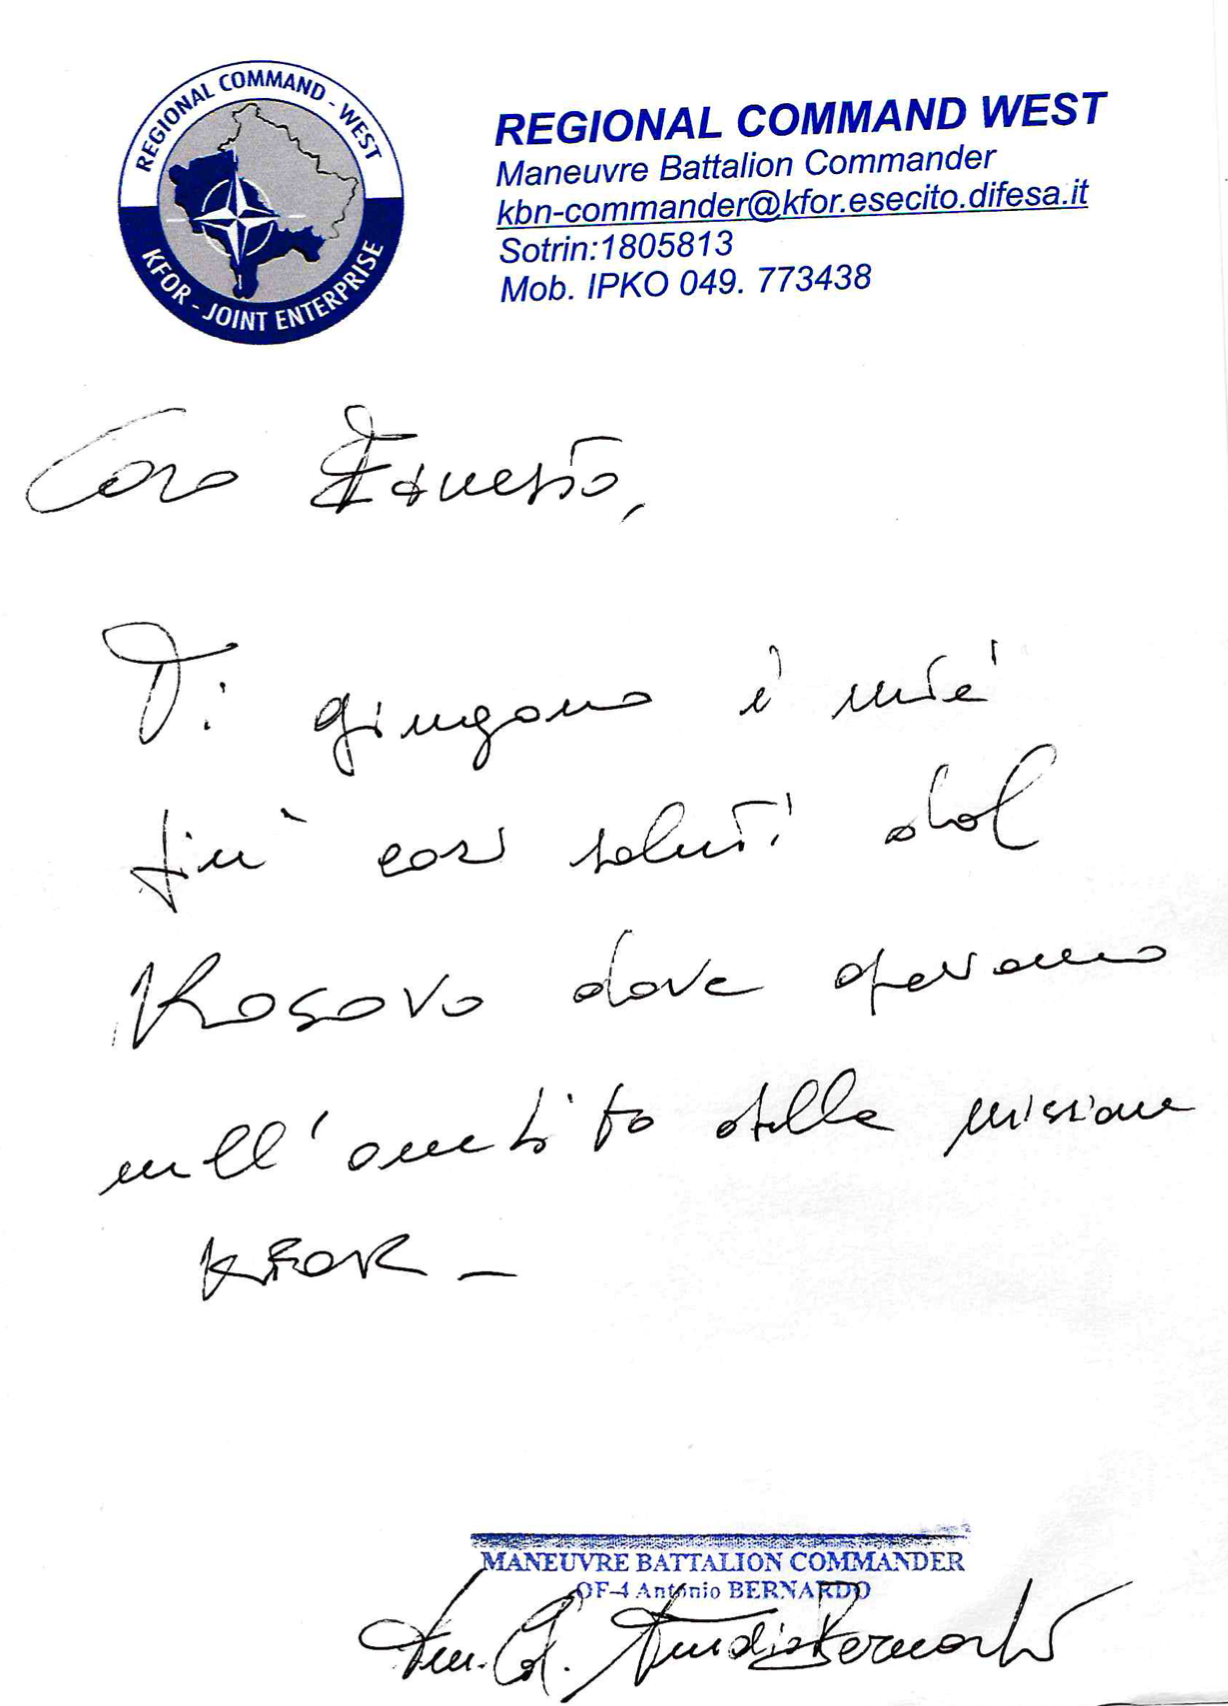 REGIONAL COMMAND - WEST
KFOR - JOINT ENTERPRISE
REGIONAL COMMAND WEST
Maneuvre Battalion Commander
kbn-commander@kfor.esecito.difesa.it
Sotrin:1805813
Mob. IPKO 049. 773438
Caro Ernesto,
Ti giungano i miei
più cari saluti dal
Kosovo dove operiamo
nell'ambito della missione
KFOR -
MANEUVRE BATTALION COMMANDER
OF-4 Antonio BERNARDO
Ten. Col. Antonio Bernardo